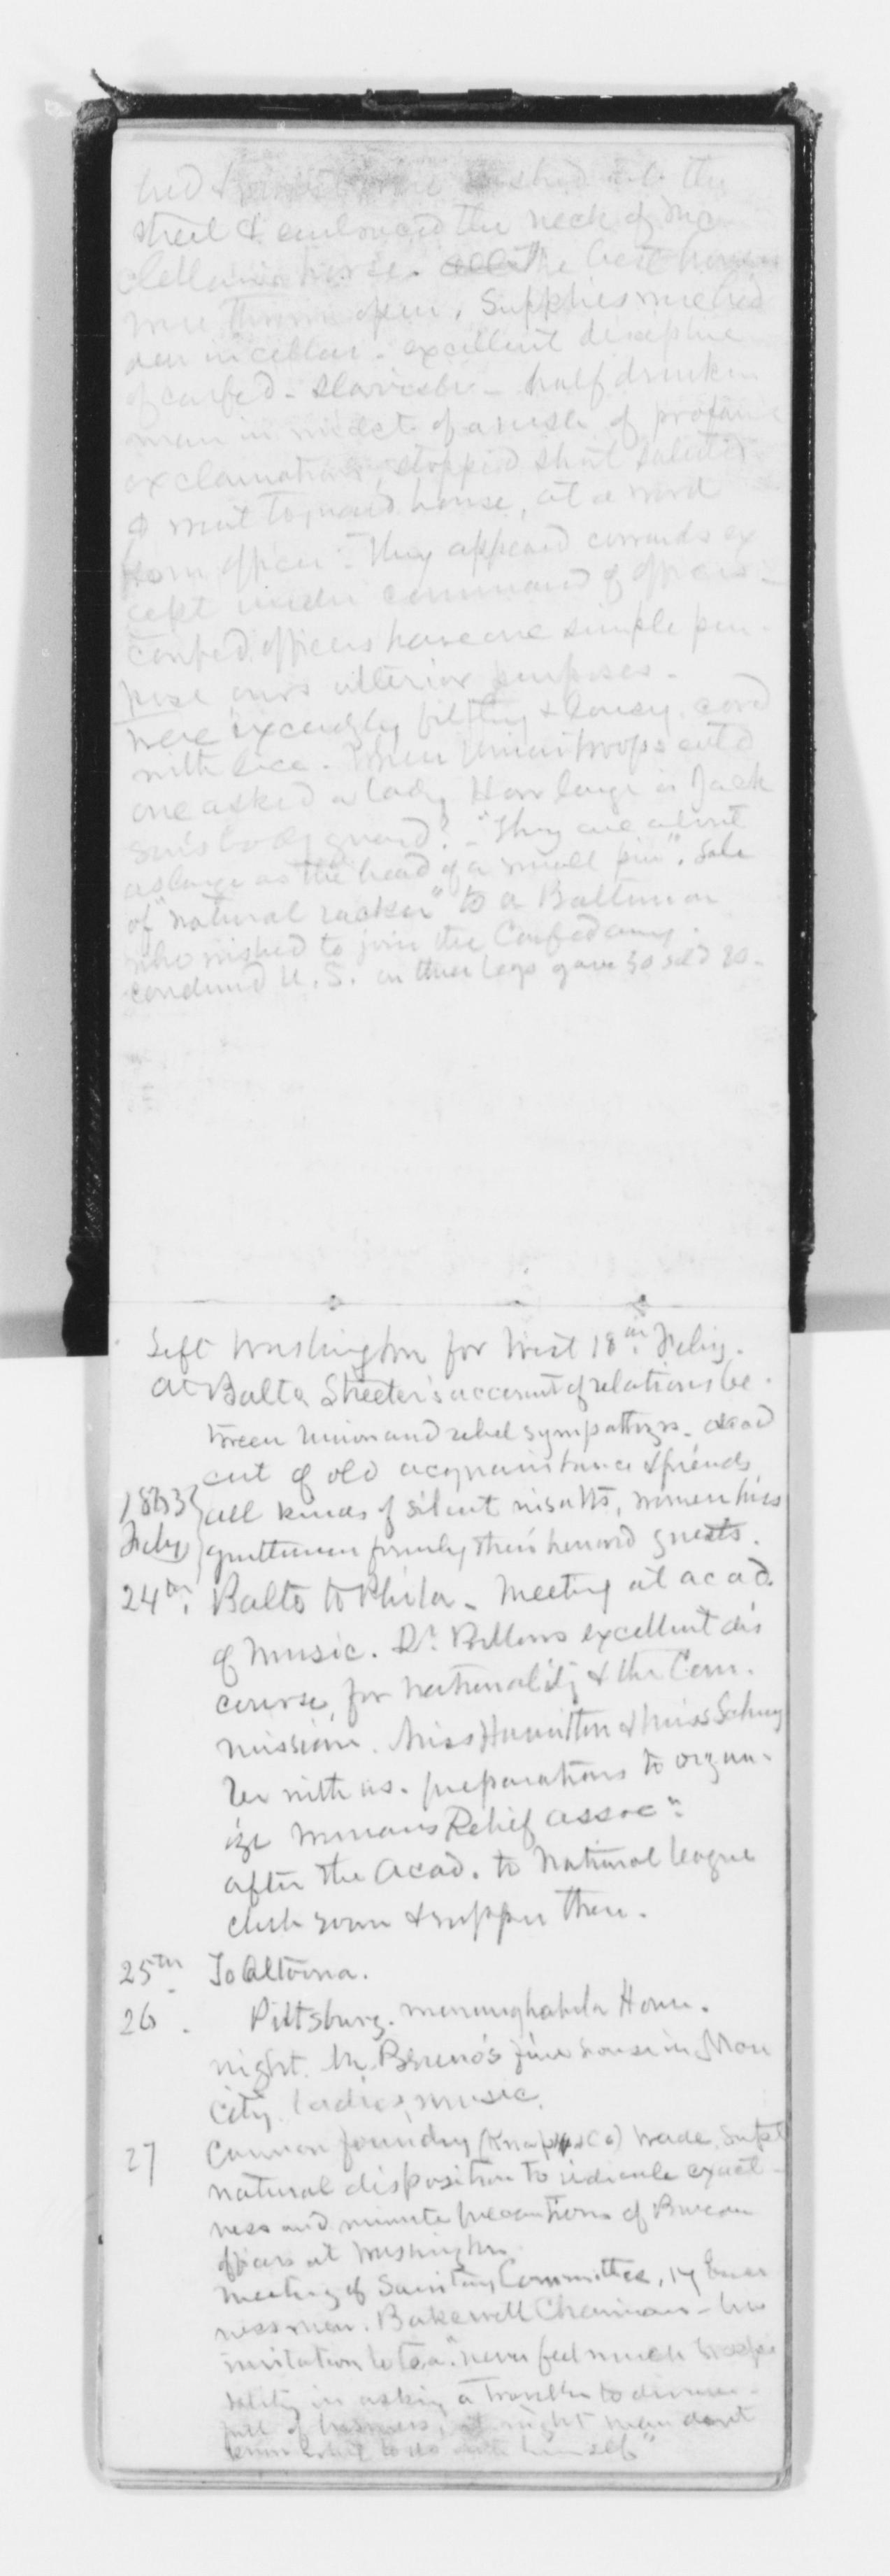 street & embraced the neck of Mc
Clellan's horse. The best houses
were thrown open. Supplies were hid
den in cellar. excellent discipline
of confed. half drunken
man in midst of a rush of profane
exclamations, stopped short saluted
& went toward house, at a word
from officer. They appeared cowards ex
cept under command of officers.
Confed. officers have one simple pur-
pose ours ulterior purposes.
were exceedgly filthy & lousy, cov'd
with lice. When Union troops ent'd
one asked a lady How large is Jack
son's body guard? - "They are about
as large as the head of a small pin". Sale
of "natural racker" to a Baltimorean
who wished to join the Confed army.
condemnd U.S. on three legs gave 30 sold 80.
Left Washington for West 18th Feby.
At Balto Streeter's account of relations be
tween Union and rebel sympathizrs. dead
cut of old acquaintance & friends
1863 all kinds of silent insults, women hiss
Feby gentlemen formerly their honored guests.
24th. Balto to Phila. Meeting at acad.
of Music. Dr. Bellows excellent dis
course, for nationality & the Com-
mission. Miss Hamilton & Miss Schuy
ler with us. preparations to organ-
ize Womans Relief assocn.
after the Acad. to National league
club room & supper there.
25th To Altoona.
26. Pittsburg. Monunghahela House.
night. Mr. Bruno's fine house in Alleg
City. ladies, music.
27 Cannon foundry (Knap & Co) Wade, Supt
natural disposition to ridicule exact-
ness and minute precautions of Bureau
officers at Washington.
Meeting of Sanitary Committee, 17 busi
ness men. Bakewell Chairman - his
invitation to tea. "never feel much hospi
tality in asking a traveller to dinner -
full of business, at night man dont
know what to do with himself"